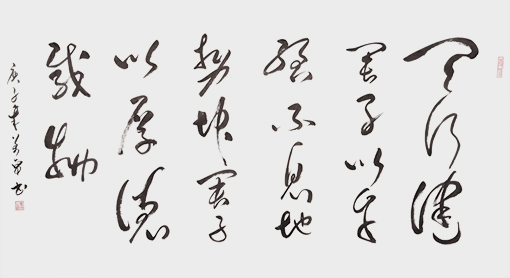 天行健
君子以自
强不息地
势坤君子
以厚德
载物
庚子年书